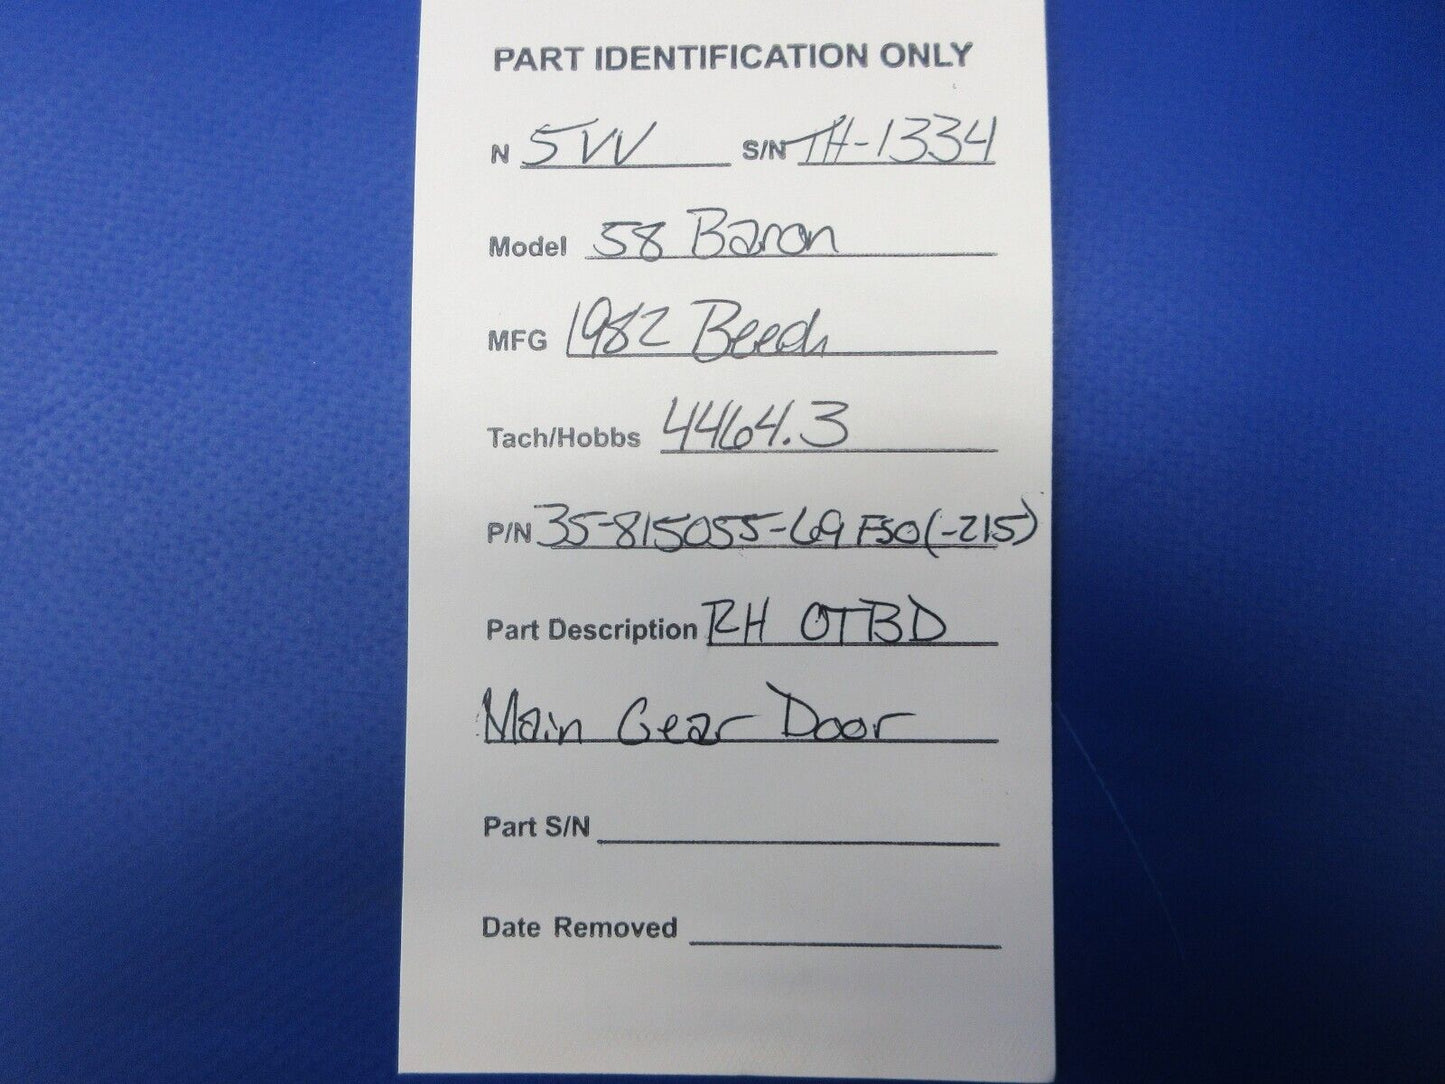 PART IDENTIFICATION ONLY
N 5VV S/N TH-1334
Model 58 Baron
MFG 1982 Beech
Tach/Hobbs 4464.3
P/N 35-815055-69 FSO(-215)
Part Description RH OTBD
Main Gear Door
Part S/N
Date Removed